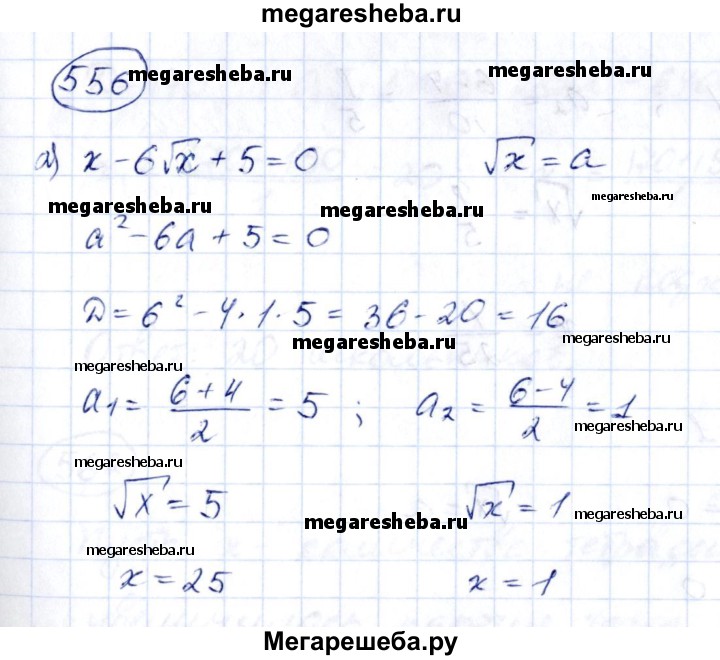 megaresheba.ru
556 megaresheba.ru megaresheba.ru
а) x - 6√x + 5 = 0 √x = a
megaresheba.ru megaresheba.ru megaresheba.ru
a² - 6a + 5 = 0
Д = 6² - 4·1·5 = 36 - 20 = 16
megaresheba.ru megaresheba.ru
a₁ = (6+4)/2 = 5 ; a₂ = (6-4)/2 = 1
megaresheba.ru megaresheba.ru
√x = 5 √x = 1
megaresheba.ru megaresheba.ru megaresheba.ru
x = 25 x = 1
Мегарешеба.ру